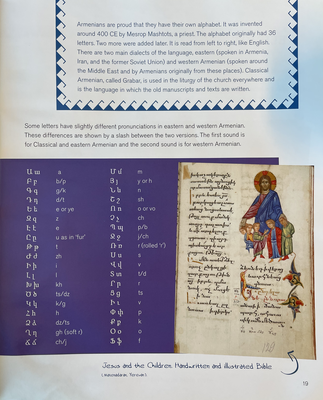 Armenians are proud that they have their own alphabet. It was invented
around 400 CE by Mesrop Mashtots, a priest. The alphabet originally had 36
letters. Two more were added later. It is read from left to right, like English.
There are two main dialects of the language, eastern (spoken in Armenia,
Iran, and the former Soviet Union) and western Armenian (spoken around
the Middle East and by Armenians originally from these places). Classical
Armenian, called Grabar, is used in the liturgy of the church everywhere and
is the language in which the old manuscripts and texts are written.
Some letters have slightly different pronunciations in eastern and western Armenian.
These differences are shown by a slash between the two versions. The first sound is
for Classical and eastern Armenian and the second sound is for western Armenian.
Աա a
Բբ b/p
Գգ g/k
Դդ d/t
Եե e or ye
Զզ z
Էէ e
Ըը u as in 'fur'
Թթ t
Ժժ zh
Իի i
Լլ l
Խխ kh
Ծծ ts/dz
Կկ k/g
Հհ h
Ձձ dz/ts
Ղղ gh (soft r)
Ճճ ch/j
Մմ m
Յյ y or h
Նն n
Շշ sh
Ոո o or vo
Չչ ch
Պպ p/b
Ջջ j/ch
Ռռ r (rolled 'r')
Սս s
Վվ v
Տտ t/d
Րր r
Ցց ts
Ււ v
Փփ p
Քք k
Օօ o
Ֆֆ f
Jesus and the Children, Handwritten and Illustrated Bible
(Matenadaran, Yerevan)
19